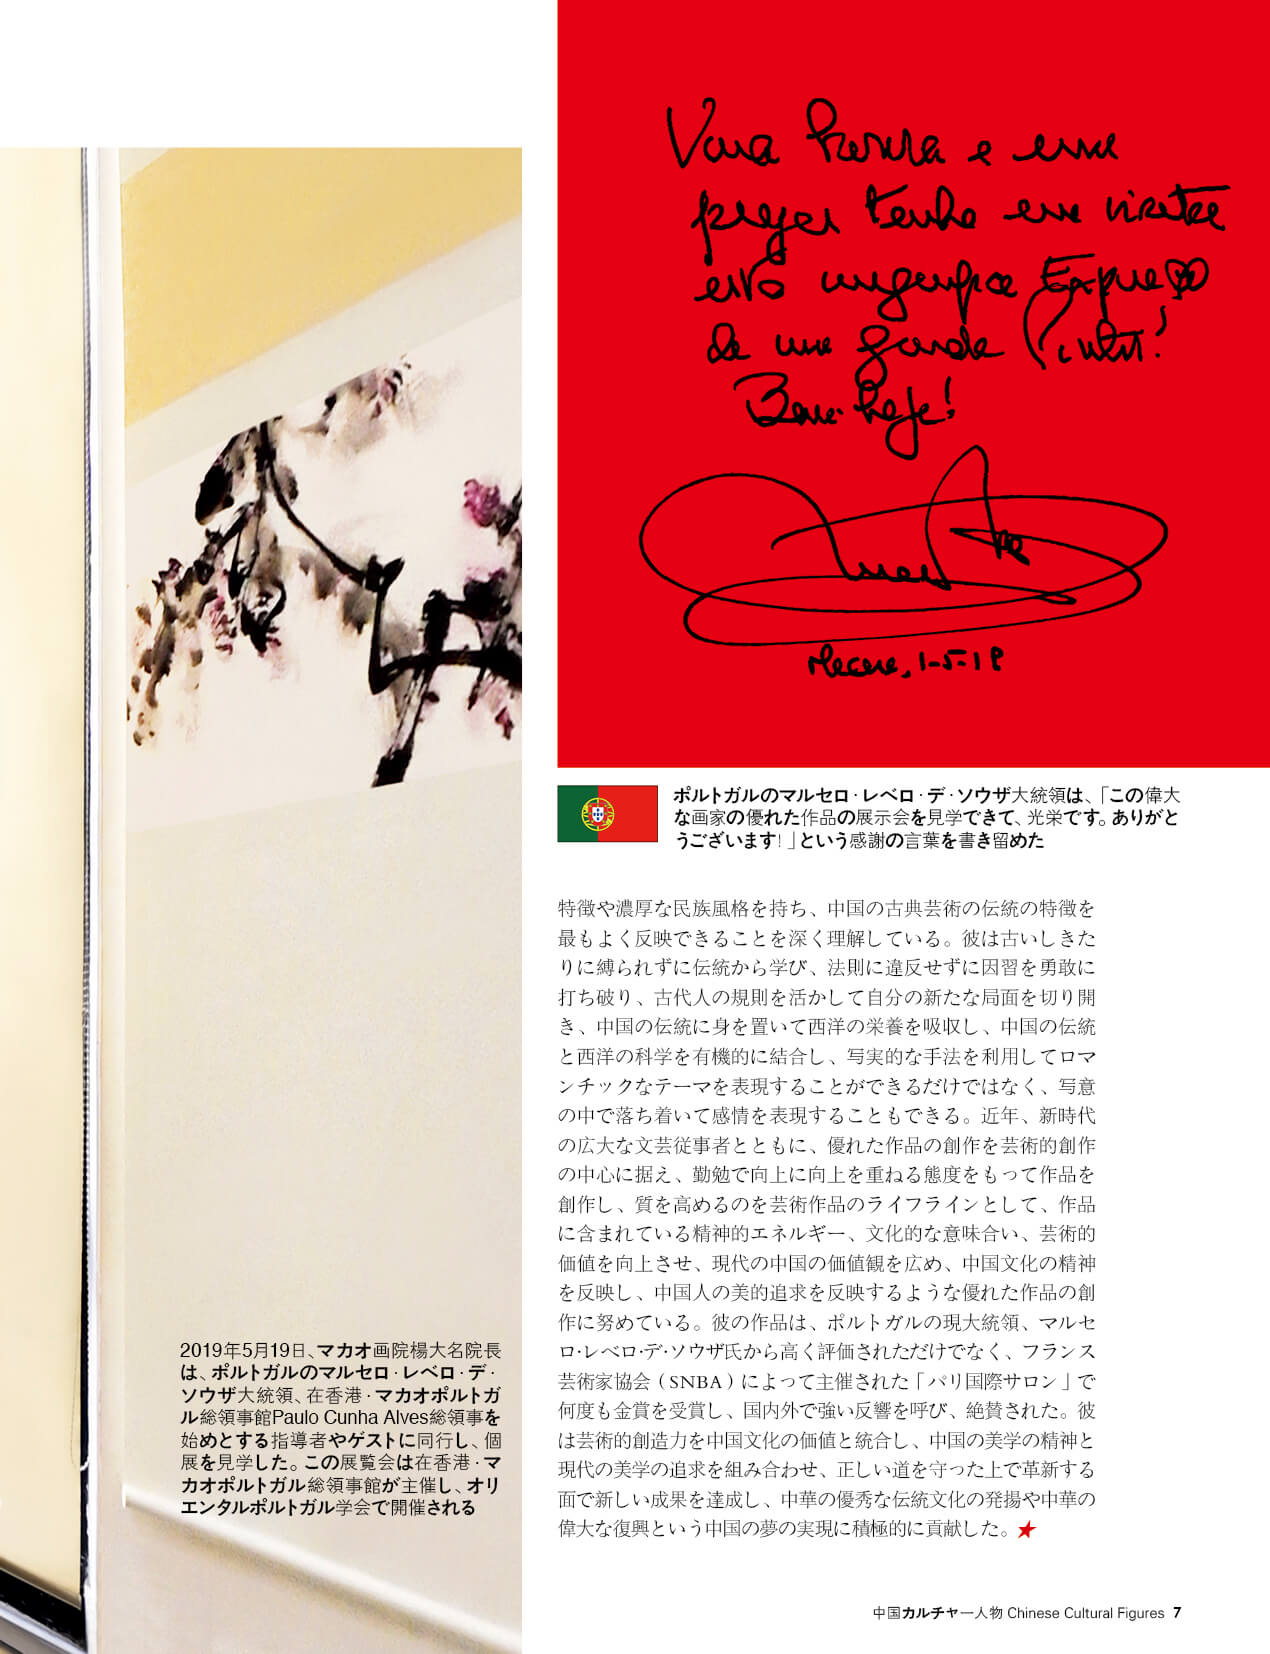 e
tenho em visitar
esta
de uma grande Pintor!
Bem-haja!
Macau, 1-5-19
ポルトガルのマルセロ·レベロ·デ·ソウザ大統領は、「この偉大
な画家の優れた作品の展示会を見学できて、光栄です。ありがと
うございます!」という感謝の言葉を書き留めた
特徴や濃厚な民族風格を持ち、中国の古典芸術の伝統の特徴を
最もよく反映できることを深く理解している。彼は古いしきた
りに縛られずに伝統から学び、法則に違反せずに因習を勇敢に
打ち破り、古代人の規則を活かして自分の新たな局面を切り開
き、中国の伝統に身を置いて西洋の栄養を吸収し、中国の伝統
と西洋の科学を有機的に結合し、写実的な手法を利用してロマ
ンチックなテーマを表現することができるだけではなく、写意
の中で落ち着いて感情を表現することもできる。近年、新時代
の広大な文芸従事者とともに、優れた作品の創作を芸術的創作
の中心に据え、勤勉で向上に向上を重ねる態度をもって作品を
創作し、質を高めるのを芸術作品のライフラインとして、作品
に含まれている精神的エネルギー、文化的な意味合い、芸術的
価値を向上させ、現代の中国の価値観を広め、中国文化の精神
を反映し、中国人の美的追求を反映するような優れた作品の創
作に努めている。彼の作品は、ポルトガルの現大統領、マルセ
ロ·レベロ·デ·ソウザ氏から高く評価されただけでなく、フランス
芸術家協会（SNBA）によって主催された「パリ国際サロン」で
何度も金賞を受賞し、国内外で強い反響を呼び、絶賛された。彼
は芸術的創造力を中国文化の価値と統合し、中国の美学の精神と
現代の美学の追求を組み合わせ、正しい道を守った上で革新する
面で新しい成果を達成し、中華の優秀な伝統文化の発揚や中華の
偉大な復興という中国の夢の実現に積極的に貢献した。
2019年5月19日、マカオ画院楊大名院長
は、ポルトガルのマルセロ·レベロ·デ·
ソウザ大統領、在香港·マカオポルトガ
ル総領事館Paulo Cunha Alves総領事を
始めとする指導者やゲストに同行し、個
展を見学した。この展覧会は在香港·マ
カオポルトガル総領事館が主催し、オリ
エンタルポルトガル学会で開催される
中国カルチャー人物 Chinese Cultural Figures 7